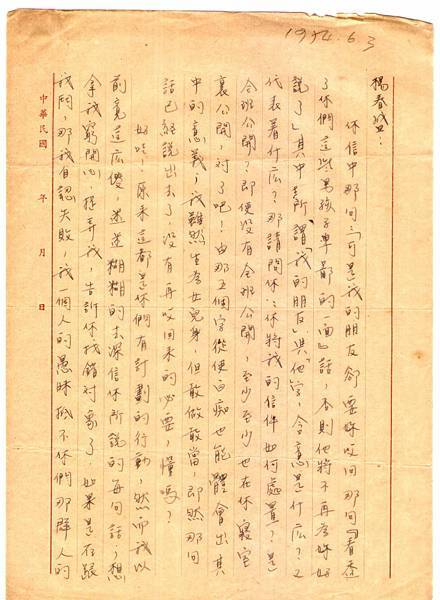 1974.6.3
楊春
你信中那句「可是我的朋友卻要妳收回那句『看透
了你們這些男孩子卑鄙的一面』話，否則他將不再為妳好
說了」其中「所謂我的朋友」與「他」字，含意是什広？又
代表着什広？那請問你：你將我的信件如何處置？是
全班公開？即使沒有全班公開，至少至少也在你寢室
裏公開，對了吧！由那五個字從使白痴也能體會出其
中的意義，我雖然生為女兒身，但敢做敢當，即然那句
話已經說出去了，沒有再收回來的必要，懂嗎？
好哇！原來這都是你們有計劃的行動，然而我以
前竟這広傻，迷迷糊糊的去深信你所說的每句話，想
拿我窮開心，捉弄我，告訴你找錯對象了，如果是存跟
我鬥，那我自認失敗，我一個人的愚昧抵不你們那群人的
中華民國 年 月 日